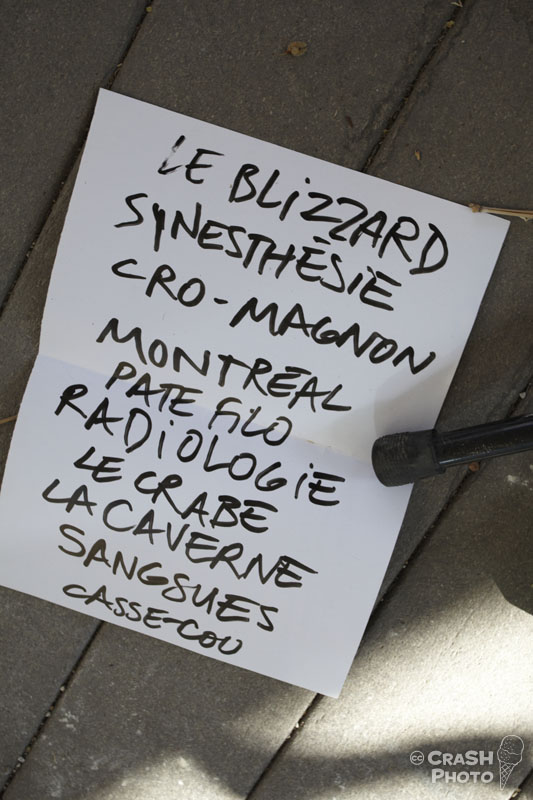 LE BLIZZARD
SYNESTHÉSIE
CRO-MAGNON
MONTRÉAL
PATE FILO
RADIOLOGIE
LE CRABE
LA CAVERNE
SANGSUES
CASSE-COU
cc CRASH
PHOTO